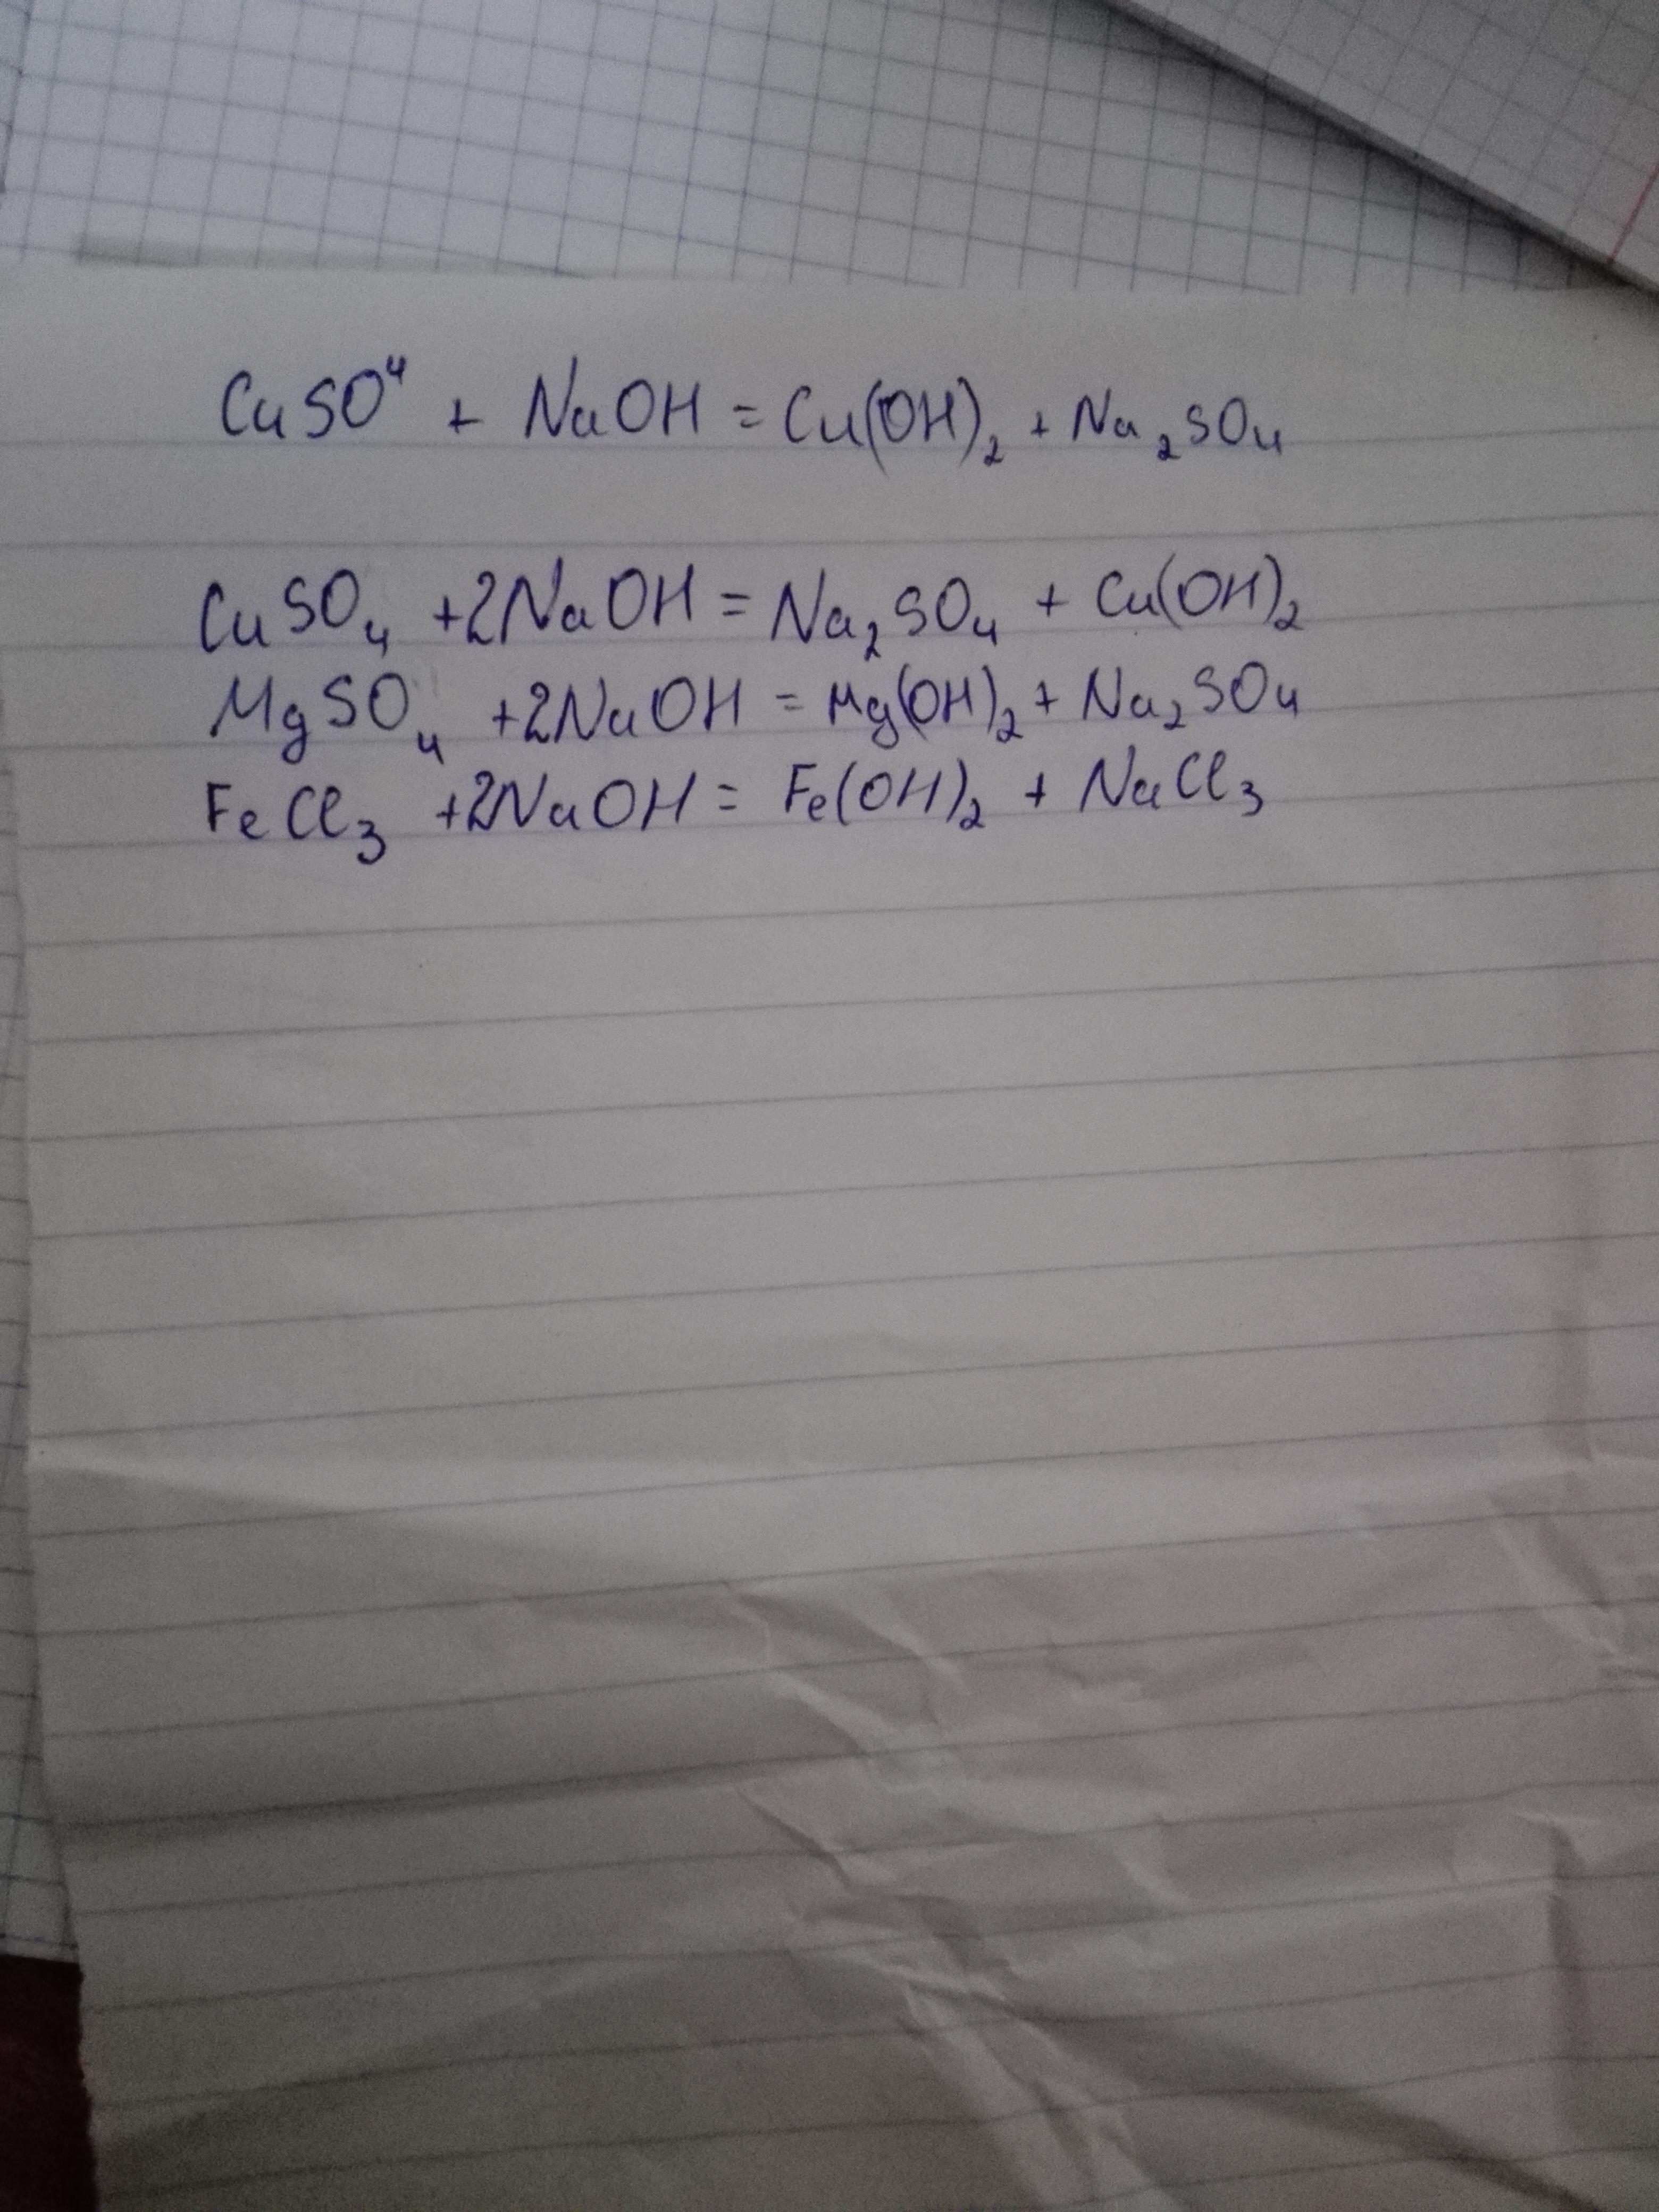 CuSO⁴ + NaOH = Cu(OH)₂ + Na₂SO₄
CuSO₄ +2NaOH = Na₂SO₄ + Cu(OH)₂
MgSO₄ +2NaOH = Mg(OH)₂ + Na₂SO₄
FeCl₃ +2NaOH = Fe(OH)₂ + NaCl₃